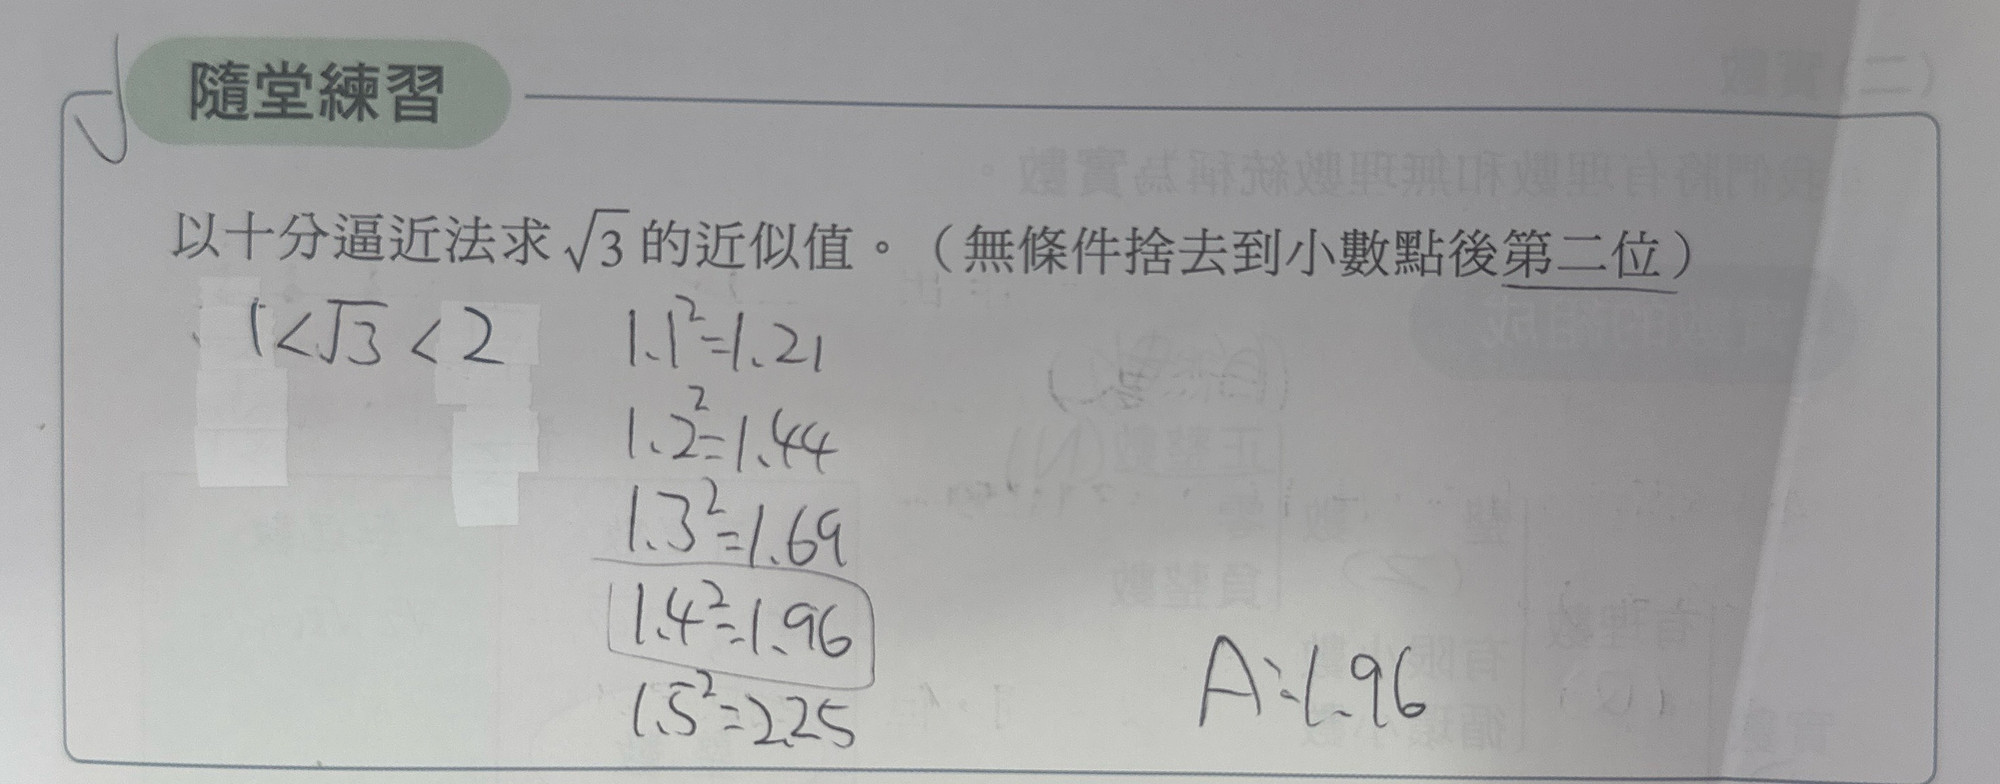 隨堂練習
以十分逼近法求√3的近似值。（無條件捨去到小數點後第二位）
1<√3<2
1.1²=1.21
1.2²=1.44
1.3²=1.69
1.4²=1.96
1.5²=2.25
A:1.96